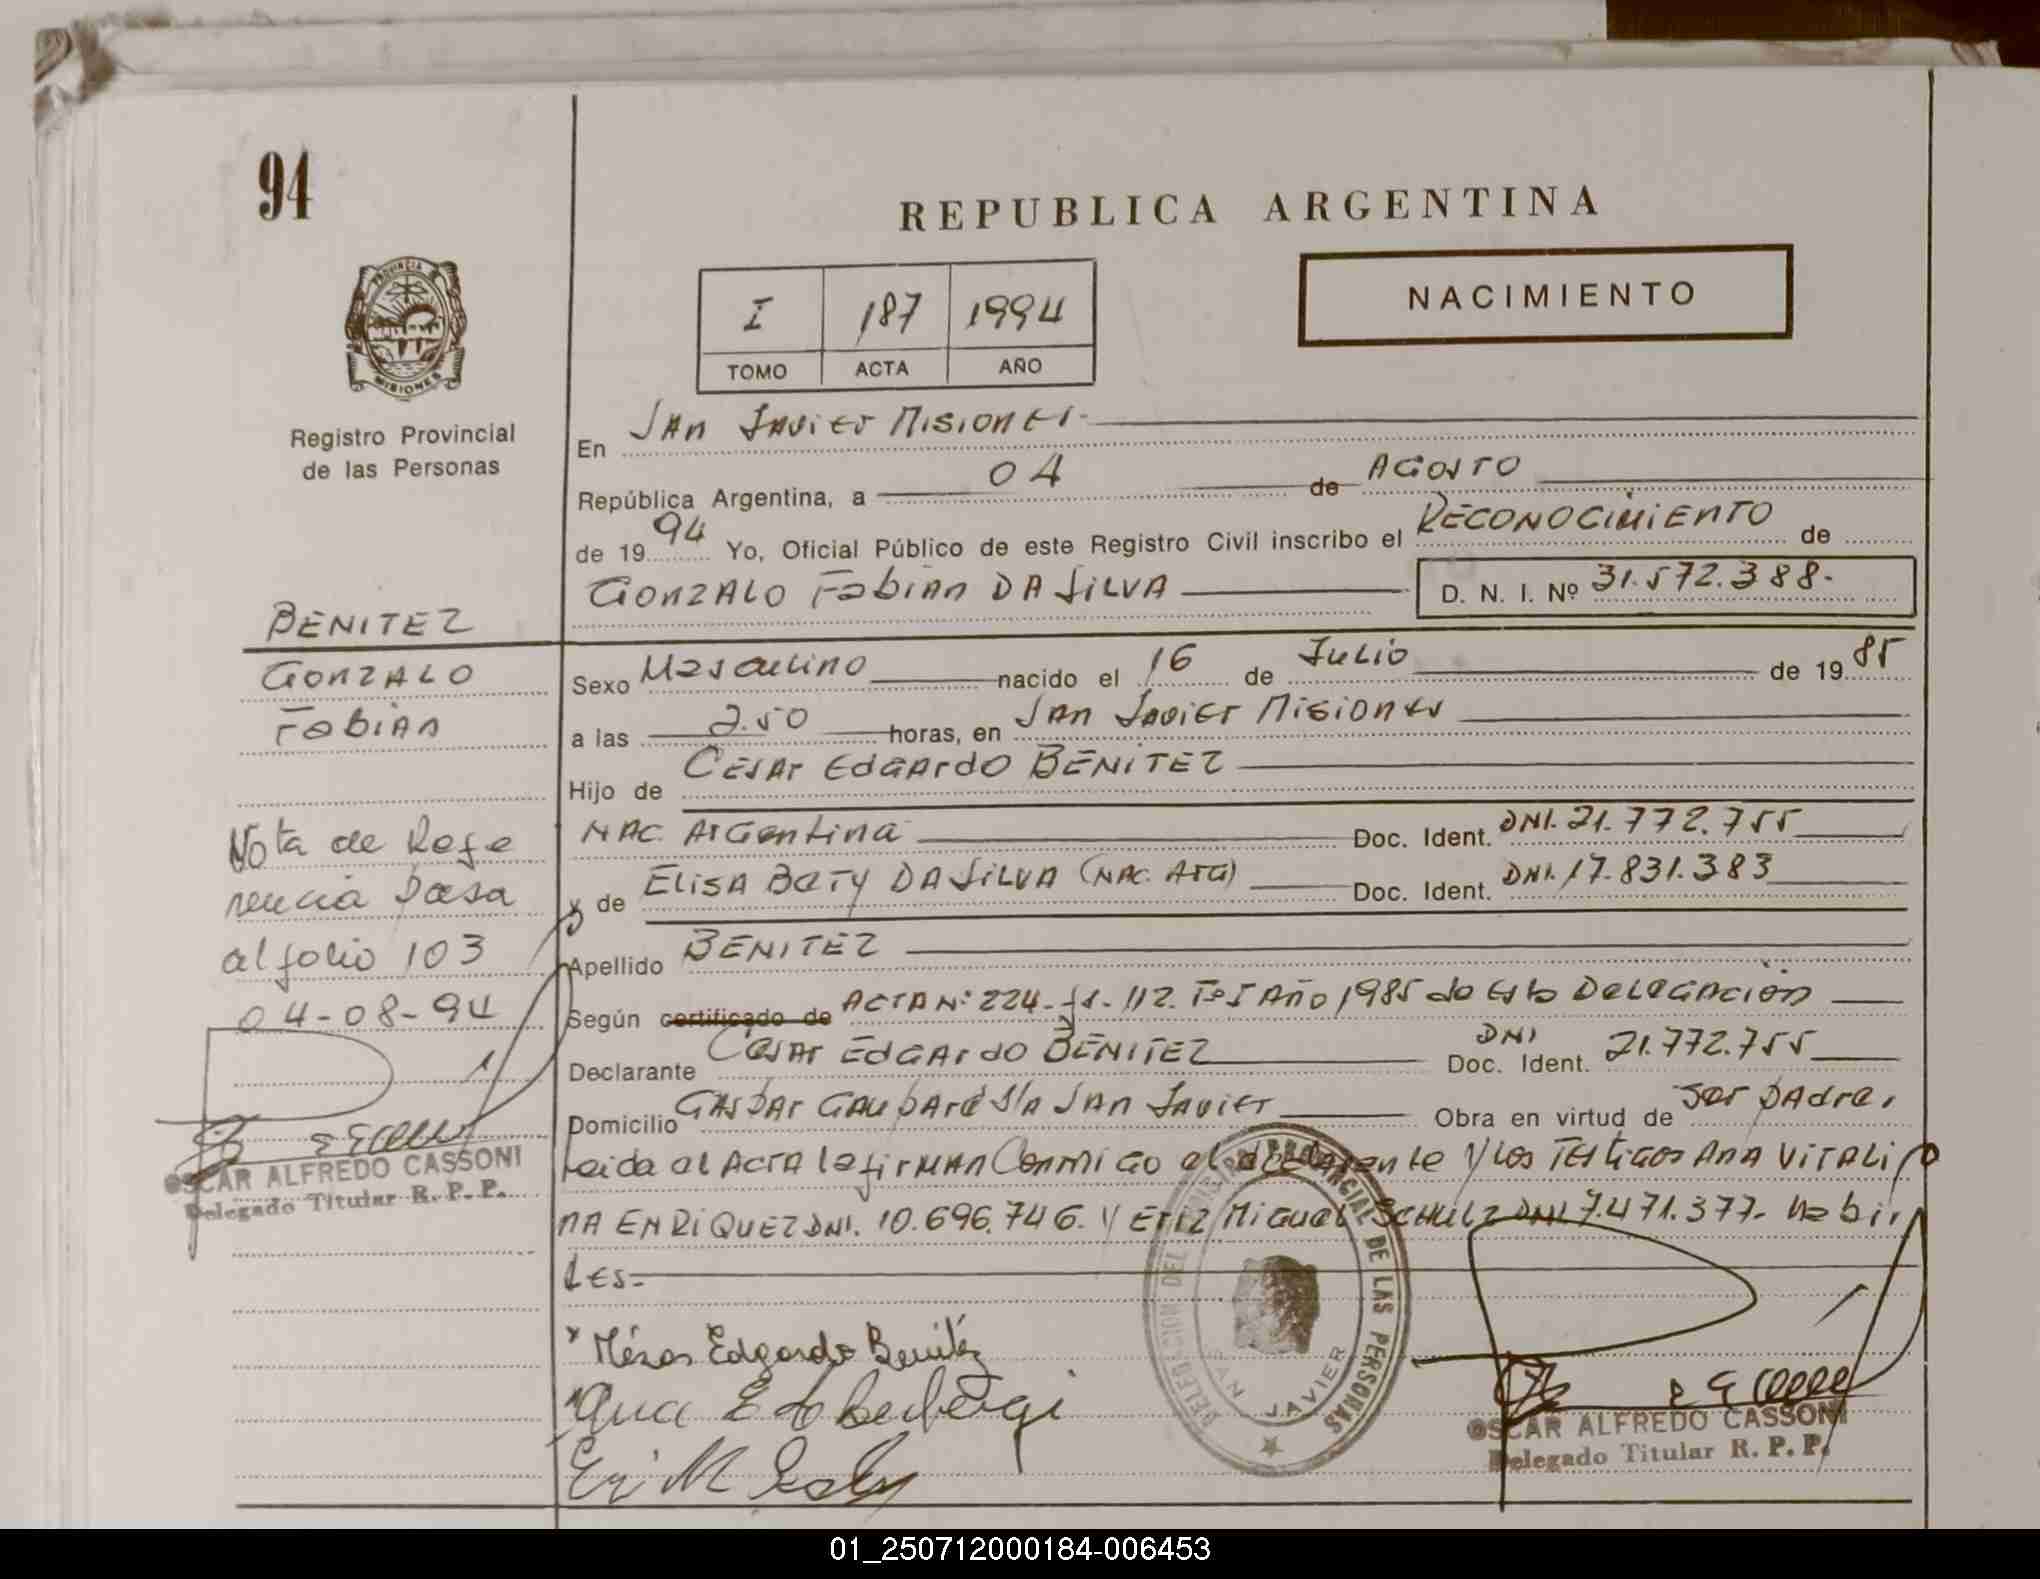 94
REPUBLICA ARGENTINA
PROVINCIA
MISIONES
Registro Provincial
de las Personas
I 187 1994
TOMO ACTA AÑO
NACIMIENTO
En San Javier Misiones
República Argentina, a 04 de Agosto
de 1994 Yo, Oficial Público de este Registro Civil inscribo el RECONOCIMIENTO de
GONZALO Fabian DA SILVA D. N. I. Nº 31.572.388.
BENITEZ
GONZALO
Fabian
Sexo Masculino nacido el 16 de Julio de 1985
a las 2.50 horas, en San Javier Misiones
Hijo de Cesar Edgardo BENITEZ
NAC. Argentina Doc. Ident. DNI. 21.772.755
y de Elisa Baty DA SILVA (NAC. Arg) Doc. Ident. DNI. 17.831.383
Apellido BENITEZ
Según certificado de ACTA Nº 224. fs. 112. Tº I Año 1985 de esta Delegación
Declarante Cesar Edgardo BENITEZ DNI Doc. Ident. 21.772.755
Domicilio Gaspar S/n San Javier Obra en virtud de ser padre,
Leida el Acta la firman Conmigo el declarante y los Testigos Ana Vitali
na ENRIQUEZ DNI. 10.696.746. y Eriz Miguel SCHULZ DNI 7.471.377. habi
les.
Nota de Refe
rencia pasa
al folio 103
04-08-94
OSCAR ALFREDO CASSONI
Delegado Titular R. P. P.
Edgardo Benitéz
DELEGACION DEL REGISTRO PROVINCIAL DE LAS PERSONAS
SAN JAVIER
OSCAR ALFREDO CASSONI
Delegado Titular R. P. P.
01_250712000184-006453